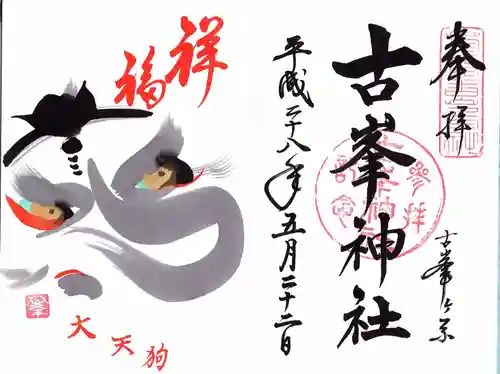 奉拝
古峯ヶ原
古峯神社
平成二十八年五月二十二日
祥
福
大天狗
峯